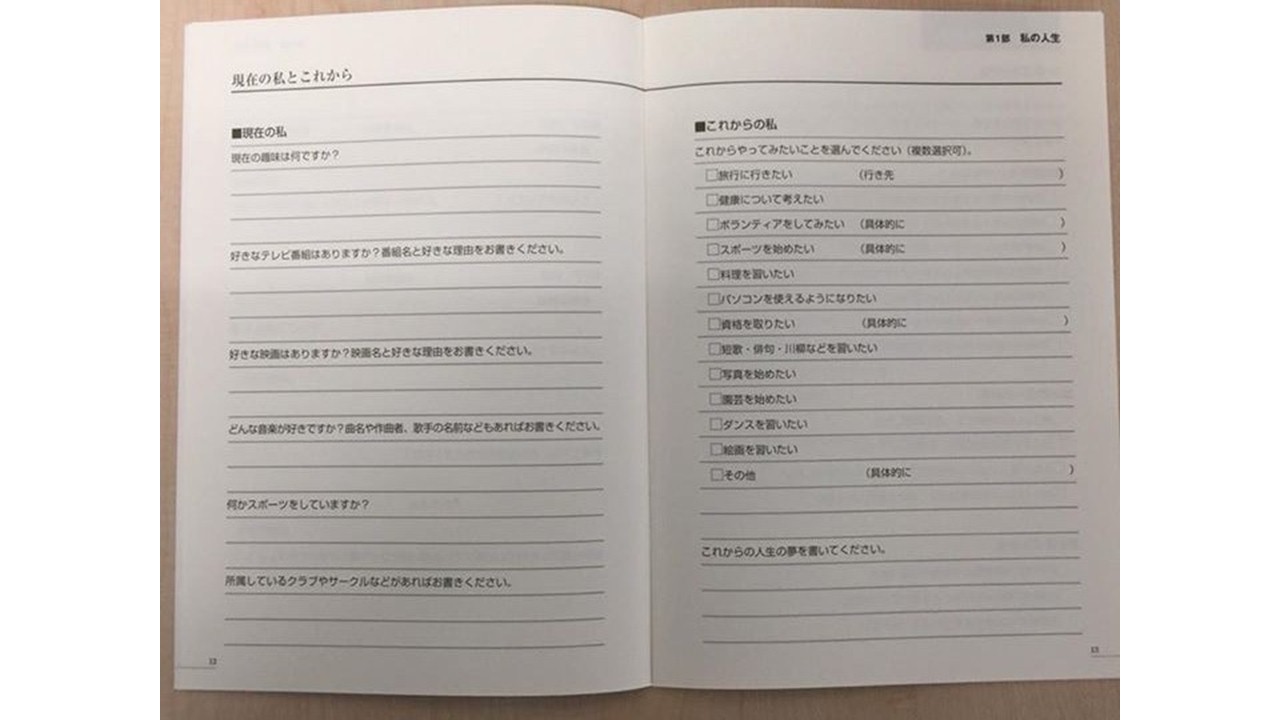 現在の私とこれから
■現在の私
現在の趣味は何ですか？
好きなテレビ番組はありますか？番組名と好きな理由をお書きください。
好きな映画はありますか？映画名と好きな理由をお書きください。
どんな音楽が好きですか？曲名や作曲者、歌手の名前などもあればお書きください。
何かスポーツをしていますか？
所属しているクラブやサークルなどがあればお書きください。
12
第1部　私の人生
■これからの私
これからやってみたいことを選んでください（複数選択可）。
□旅行に行きたい　（行き先　）
□健康について考えたい
□ボランティアをしてみたい　（具体的に　）
□スポーツを始めたい　（具体的に　）
□料理を習いたい
□パソコンを使えるようになりたい
□資格を取りたい　（具体的に　）
□短歌・俳句・川柳などを習いたい
□写真を始めたい
□園芸を始めたい
□ダンスを習いたい
□絵画を習いたい
□その他　（具体的に　）
これからの人生の夢を書いてください。
13